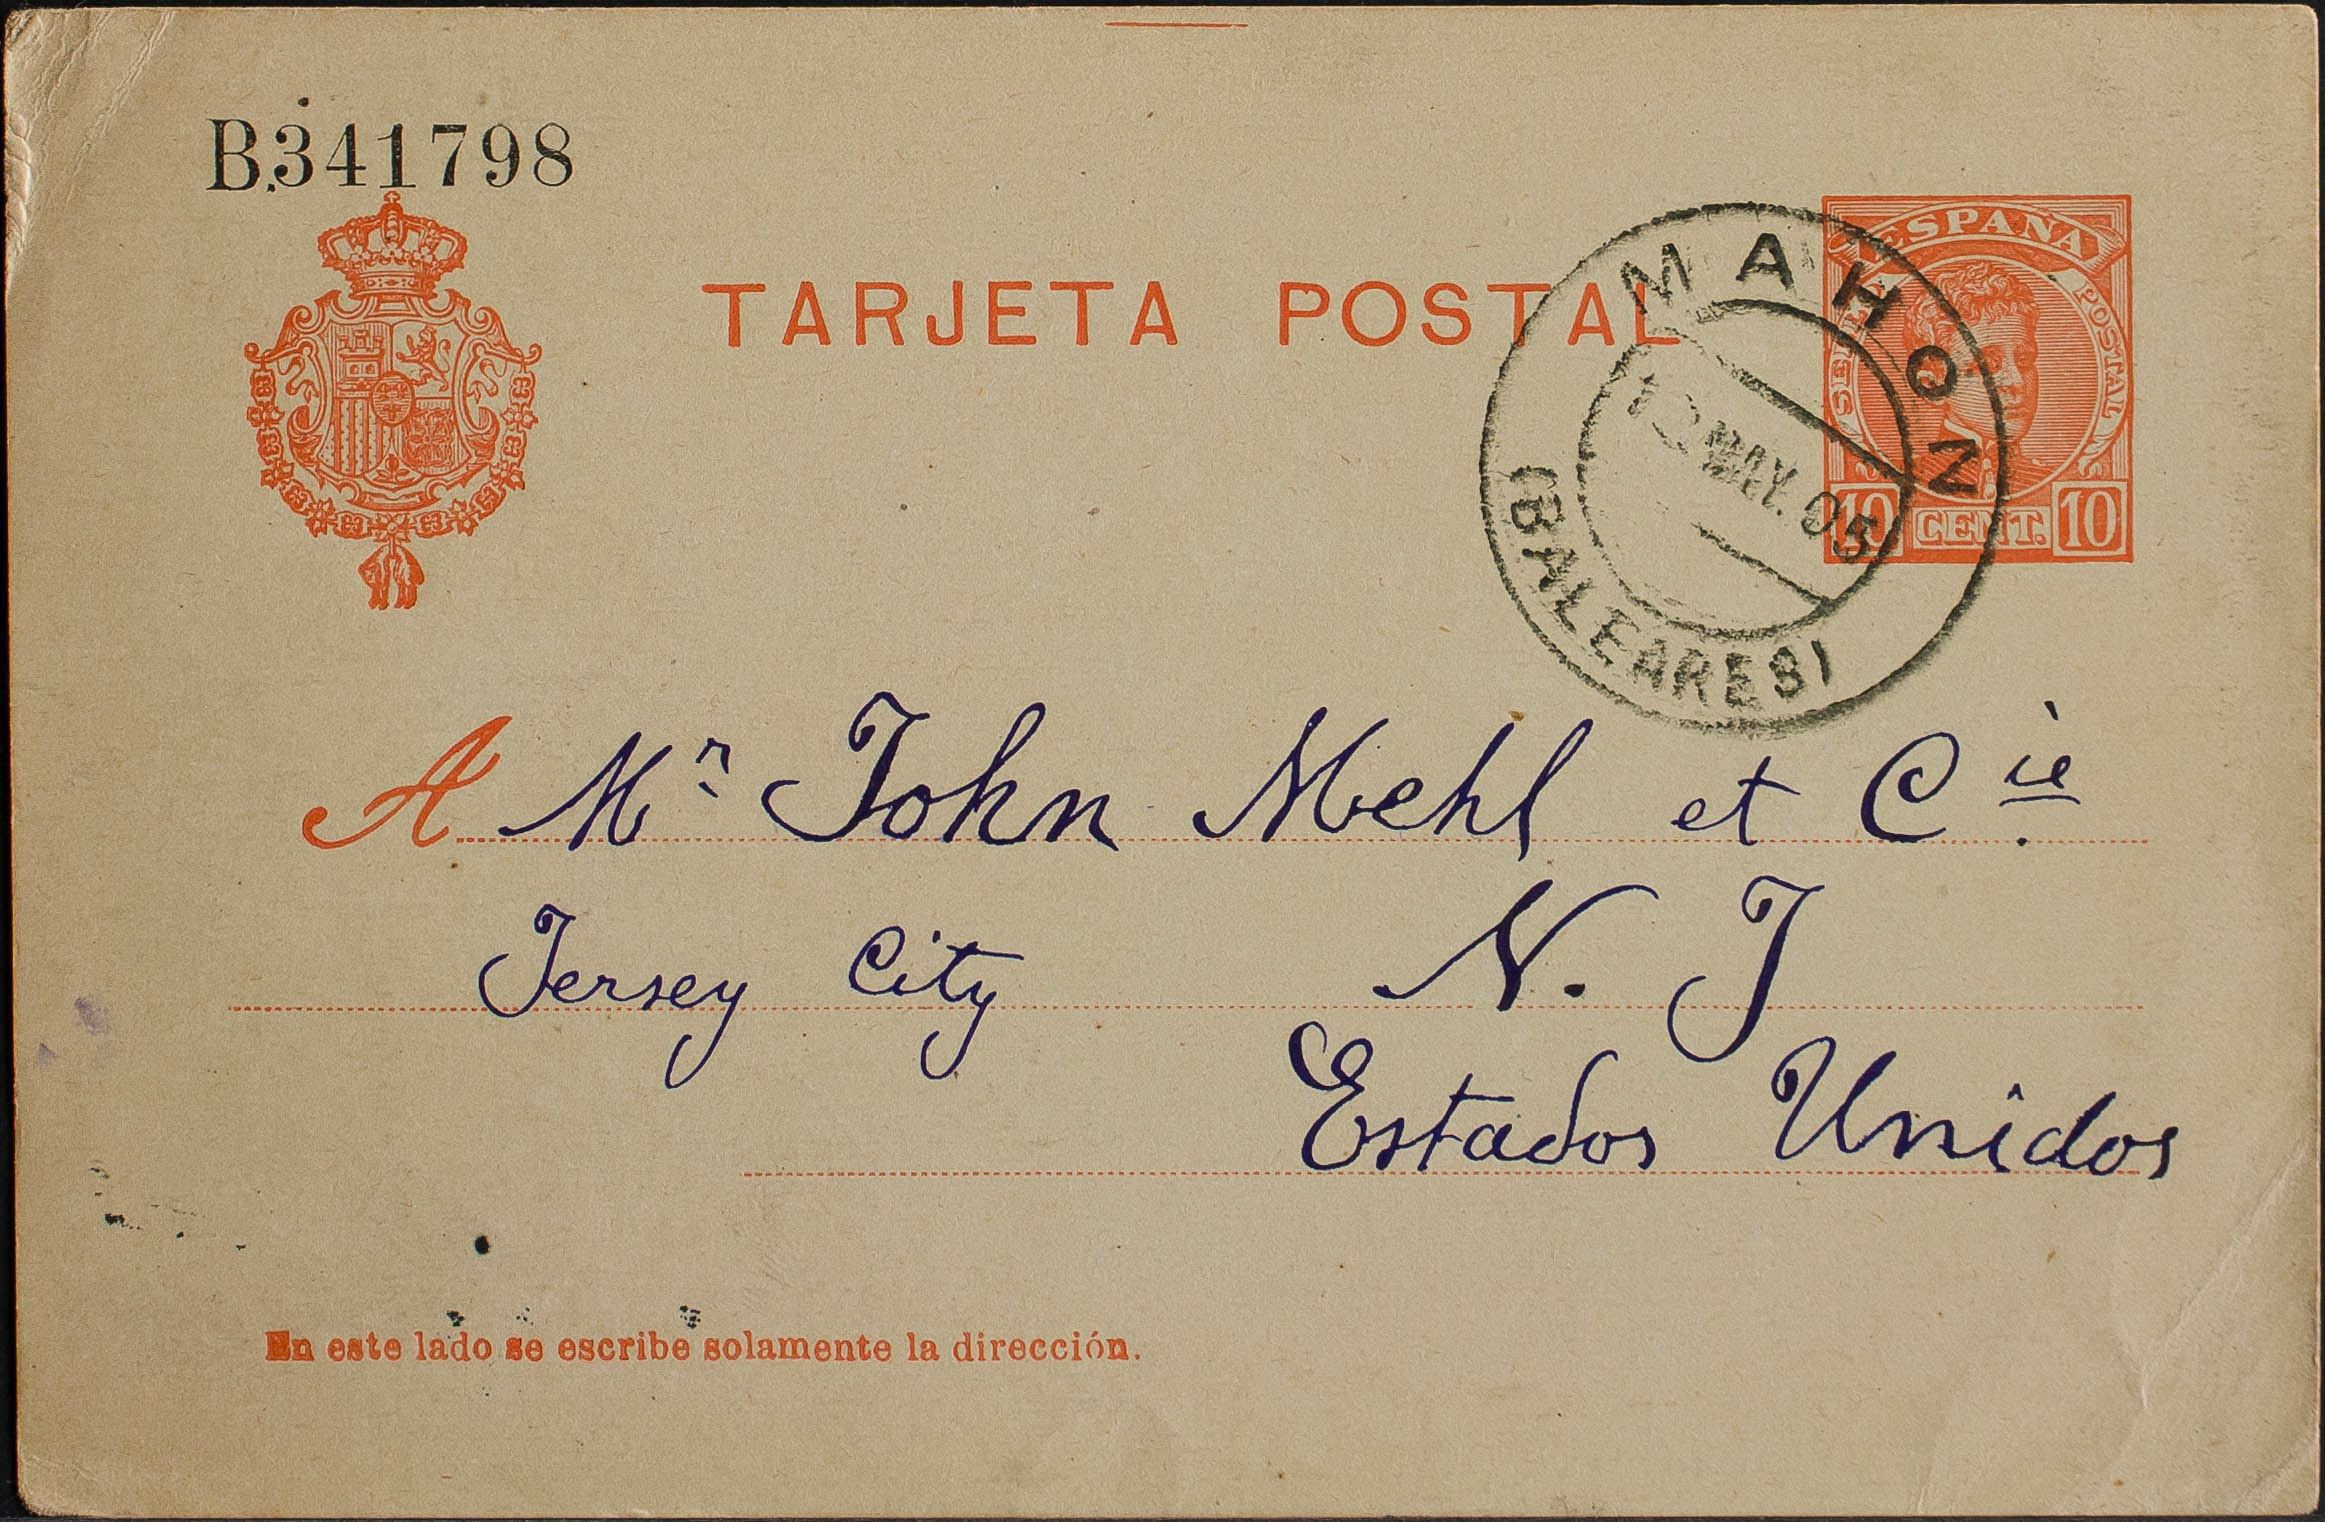 B.341798
TARJETA POSTAL
ESPAÑA
POSTAL
10 CENT. 10
MAHON
MAY. 05
(BALEARES)
A Mr John Mehl et Cie.
Jersey City N. J
Estados Unidos
En este lado se escribe solamente la dirección.